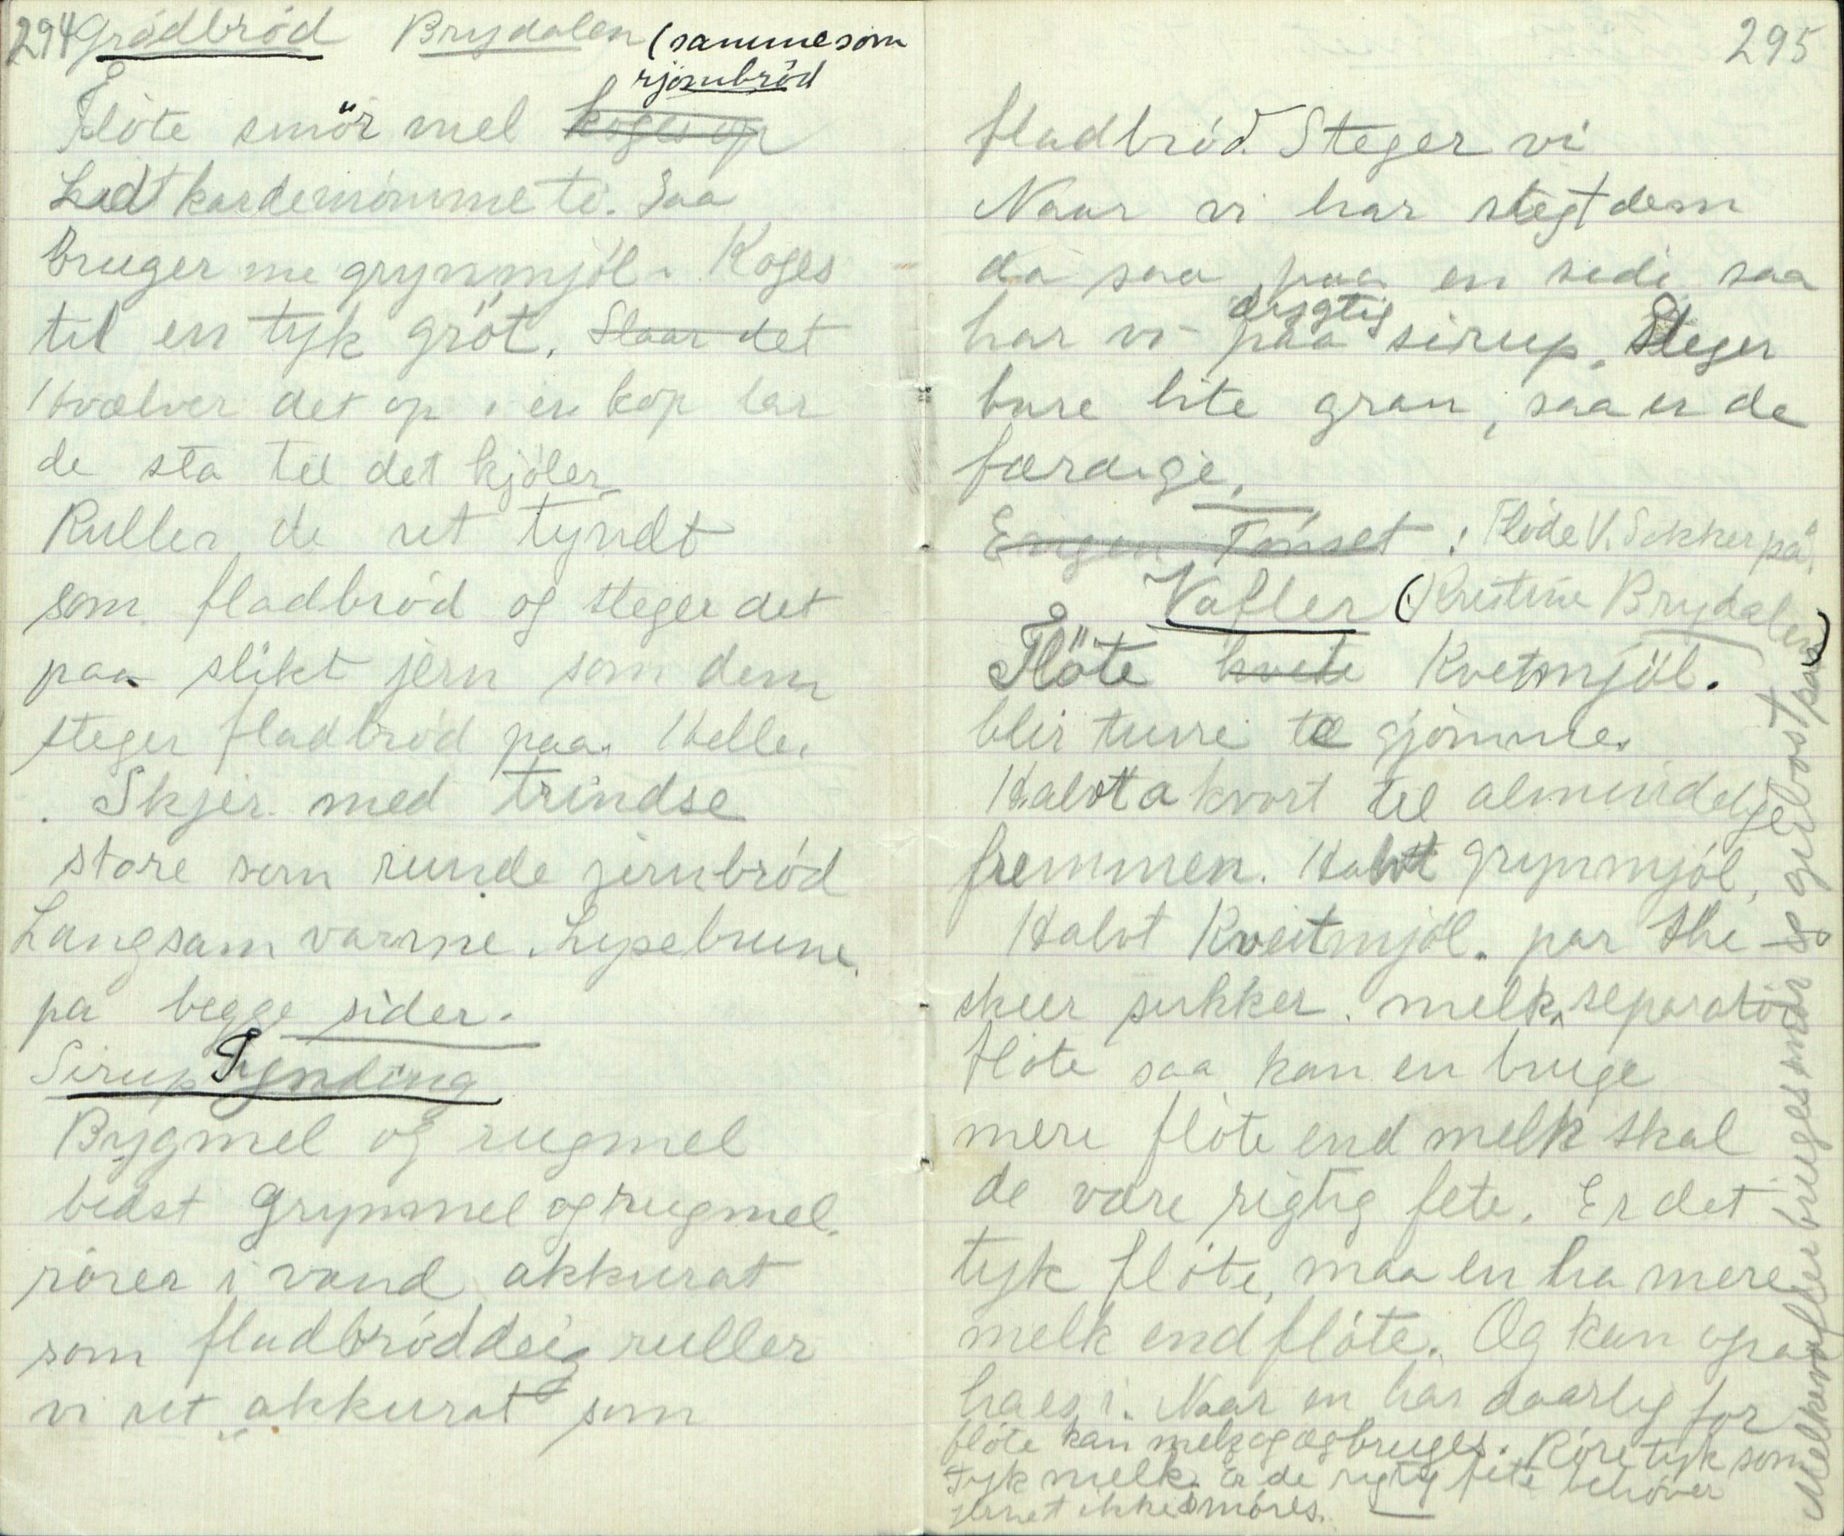 294 Grødbrød Brydalen (samme som
rjømbrød
Fløte smör mel koges op
Lidt kardemomme te. Saa
bruger me grynmjöl. Koges
til en tyk gröt. Slaar det
Hvælver det op i en kop lar
de sta til det kjöler
Ruller de ut tyndt
som fladbrød og steger det
paa slikt jern som dem
steger fladbrød paa. Helle.
. Skjer med trindse
store som runde jernbrød
Langsam varme. Lysebrune
pa begge sider.
Sirup Tynding
Bygmel og rugmel
bedst grynmel og rugmel.
rörer i vand akkurat
som fladbröddeig ruller
vi ut akkurat som
295
fladbrød. Steger vi
Naar vi har stegt dem
da saa paa en side saa
har vi paa dygtig sirup. Steger
bare lite gran, saa er de
færdige.
Engen Tönset : Fløde V. Sokker på.
Vafler (Kristine Brydalen)
Flöte hvete Kvetmjöl.
blir turre te gjömme.
Halvt a kvort til almindelige
fremmen. Halvt grynmjöl,
Halvt Kveitmjöl. par the
skeer sukker. melk, separatör
flöte saa kan en bruge
mere flöte end melk skal
de være rigtig fete. Er det
tyk flöte, maa en ha mere
melk end flöte. Og kan ogsaa
haes i. Naar en har daarlig for
flöte kan melk og æg bruges. Röre tyk som
tyk melk. Er de rigtig fete behöver
jernet ikke smöres.
Melkevafler bruges smör og geitost paa